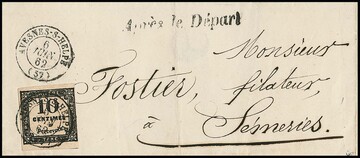 Après le Départ
AVESNES-S-HELPE
6
69
(57)
Monsieur
Fostier, filateur,
à Sémeries.
10
CENTIMES